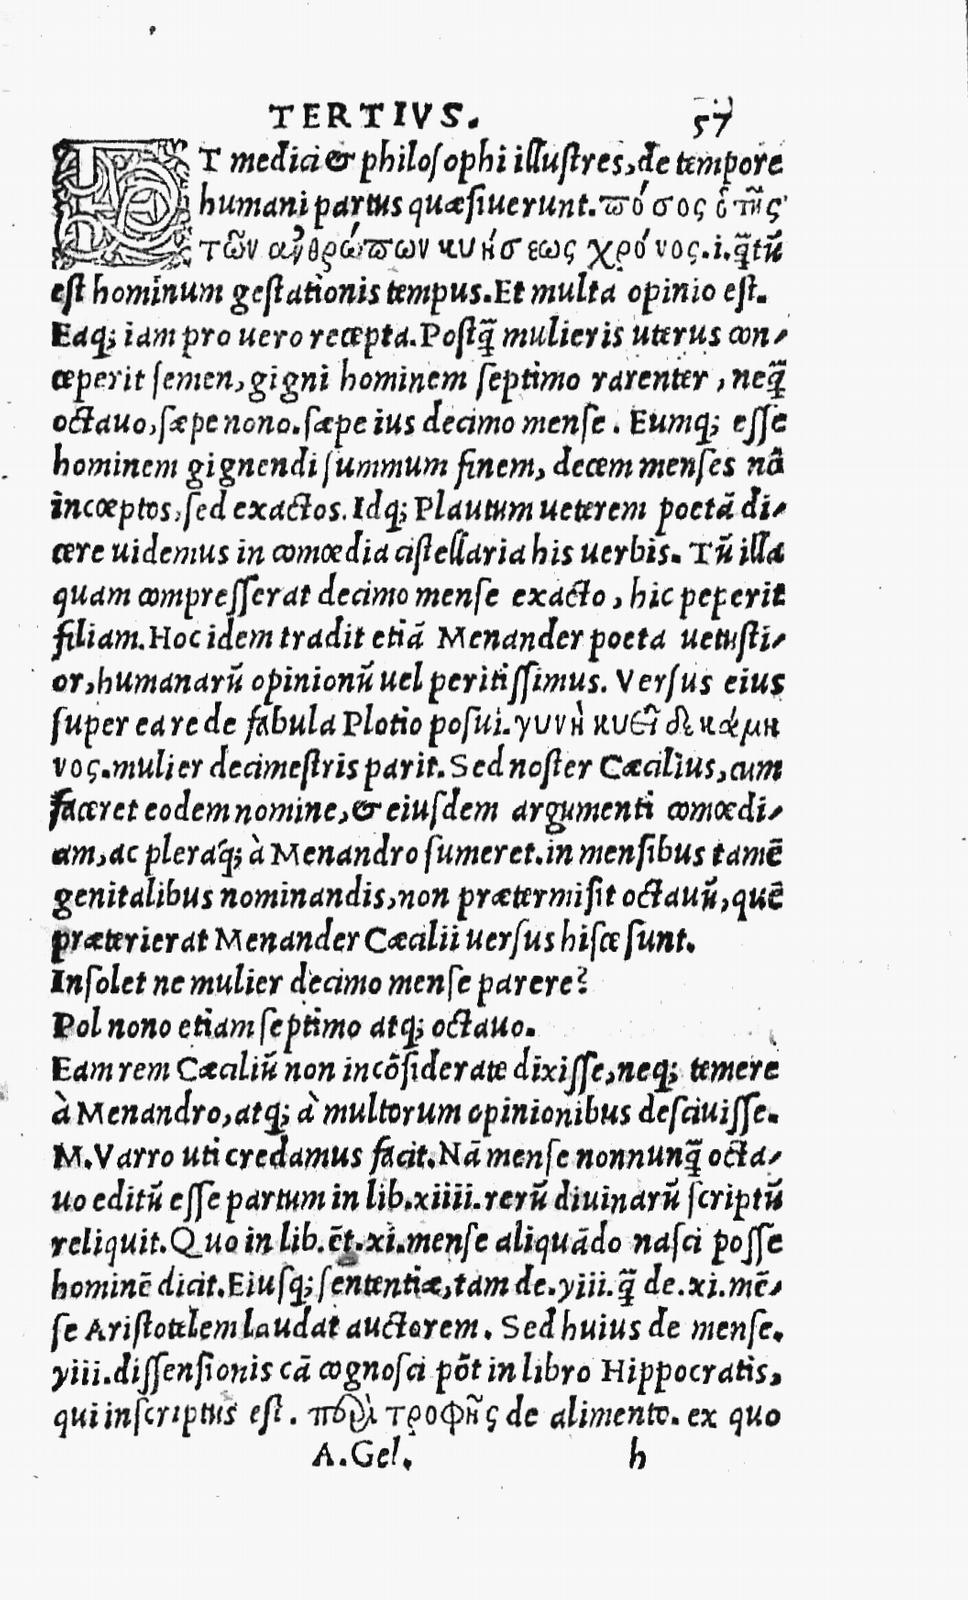 TERTIVS. 57
ET medici & philosophi illustres, de tempore
humani partus quæsiuerunt. πόσος ὁ τῆς
τῶν ἀνθρώπων κυήσεως χρόνος. i. q̃tũ
est hominum gestationis tempus. Et multa opinio est.
Eaq; iam pro uero recepta. Postq̃ mulieris uterus con-
ceperit semen, gigni hominem septimo rarenter, neq̃
octauo, sæpe nono. sæpe ius decimo mense. Eumq; esse
hominem gignendi summum finem, decem menses nõ
incœptos, sed exactos. Idq; Plautum ueterem poetã di-
cere uidemus in comœdia cistellaria his uerbis. Tũ illa
quam compresserat decimo mense exacto, hic peperit
filiam. Hoc idem tradit etiã Menander poeta uetusti-
or, humanarũ opinionũ uel peritissimus. Versus eius
super ea re de fabula Plotio posui. γυνὴ κυεῖ δεκάμη
νος. mulier decimestris parit. Sed noster Cæcilius, cum
faceret eodem nomine, & eiusdem argumenti comœdi-
am, ac pleraq; à Menandro sumeret. in mensibus tamẽ
genitalibus nominandis, non prætermisit octauũ, quẽ
præterierat Menander Cæcilii uersus hisce sunt.
Insolet ne mulier decimo mense parere?
Pol nono etiam septimo atq; octauo.
Eam rem Cæciliũ non incõsiderate dixisse, neq; temere
à Menandro, atq; à multorum opinionibus desciuisse.
M. Varro uti credamus facit. Nã mense nonnunq̃ octa-
uo editũ esse partum in lib. xiiii. rerũ diuinarũ scriptũ
reliquit. Quo in lib. ẽt. xi. mense aliquãdo nasci posse
hominẽ dicit. Eiusq; sententiæ, tam de. yiii. q̃ de. xi. mẽ-
se Aristotelem laudat auctorem. Sed huius de mense.
yiii. dissensionis cã cognosci põt in libro Hippocratis,
qui inscriptus est. περὶ τροφῆς de alimento. ex quo
A. Gel. h